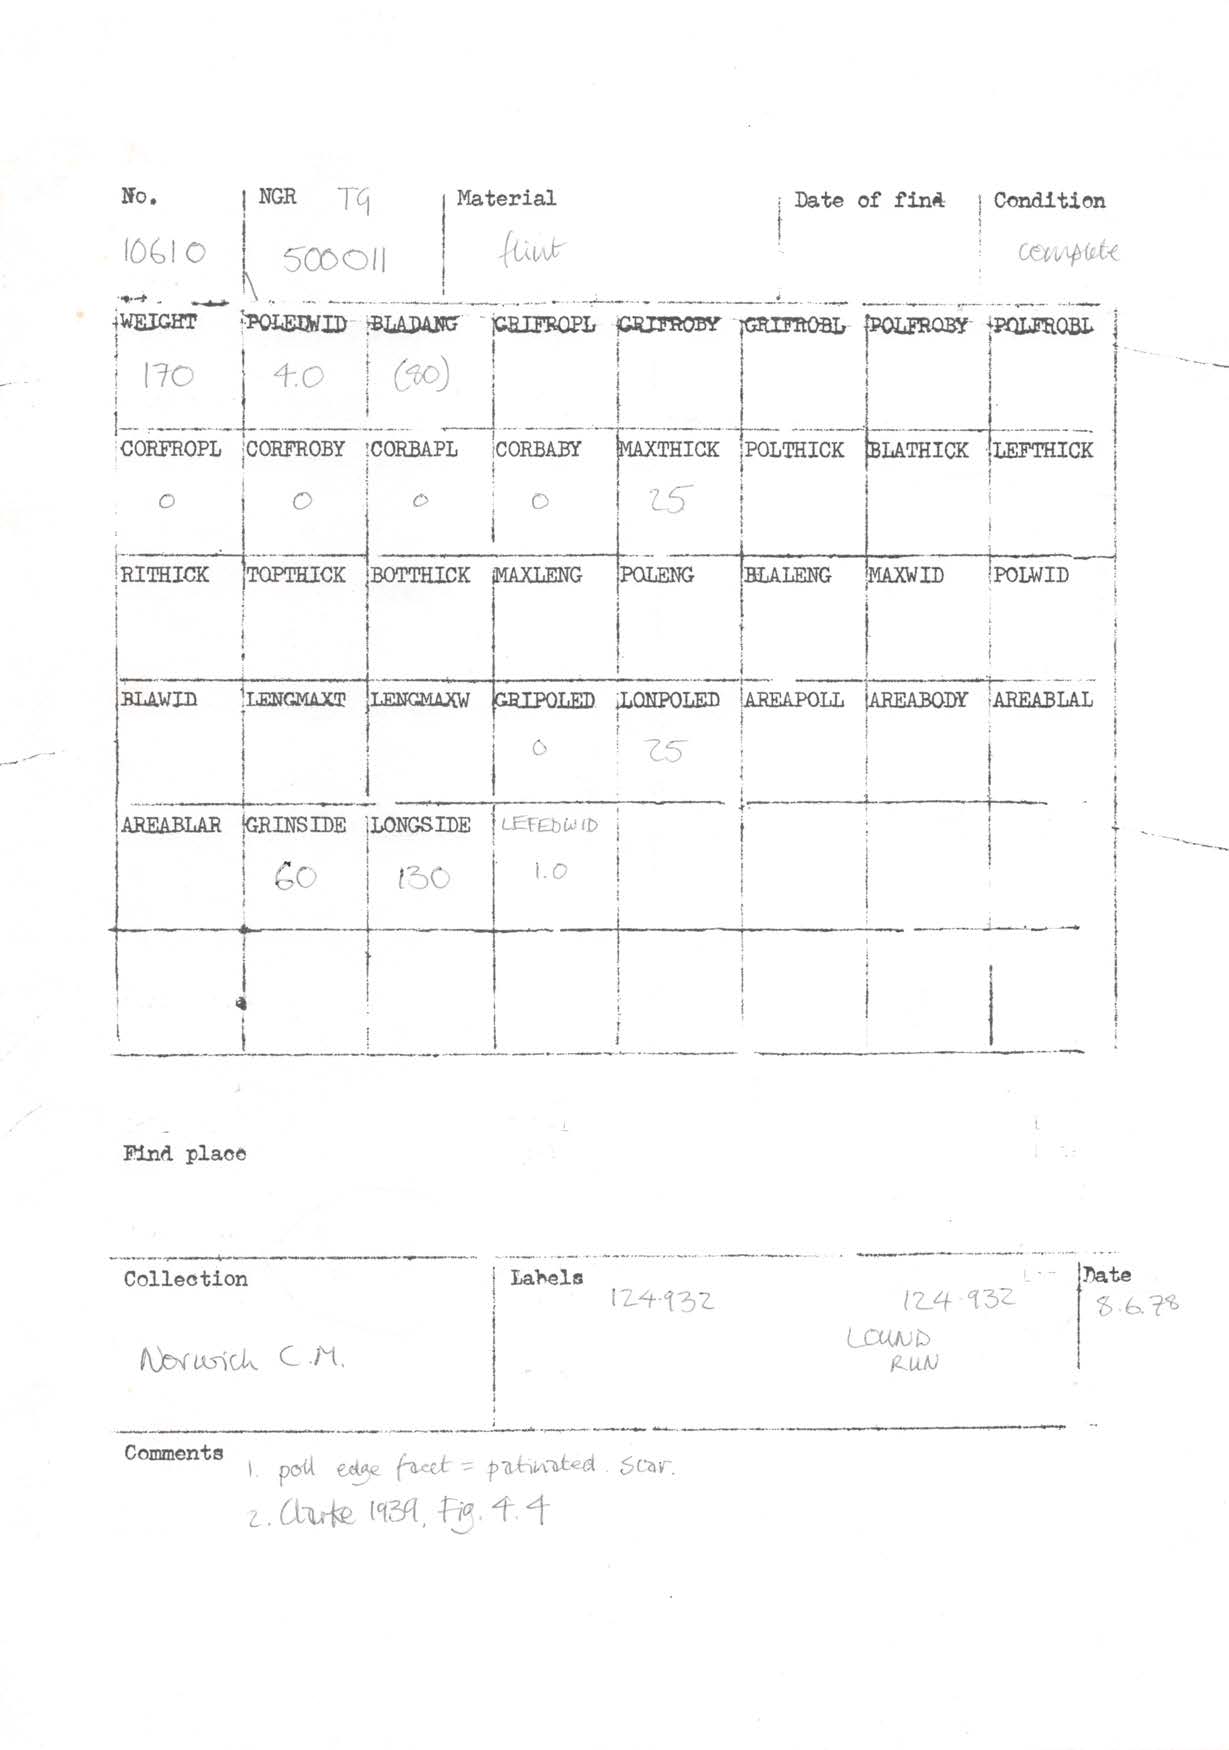 No. NGR TG Material Date of find Condition
10610 500011 flint complete
WEIGHT POLEDWID BLADANG GRIFROPL GRIFROBY GRIFROBL POLFROBY POLFROBL
170 4.0 (80)
CORFROPL CORFROBY CORBAPL CORBABY MAXTHICK POLTHICK BLATHICK LEFTHICK
0 0 0 0 25
RITHICK TOPTHICK BOTTHICK MAXLENG POLENG BLALENG MAXWID POLWID
BLAWID LENGMAXT LENGMAXW GRIPOLED LONPOLED AREAPOLL AREABODY AREABLAL
0 25
AREABLAR GRINSIDE LONGSIDE LEFEDWID
60 130 1.0
Find place
Collection Labels Date
124.932 124.932 8.6.78
LOUND
Norwich C.M. RUN
Comments
1. poll edge facet = patinated scar.
2. Clarke 1939, Fig. 4.4